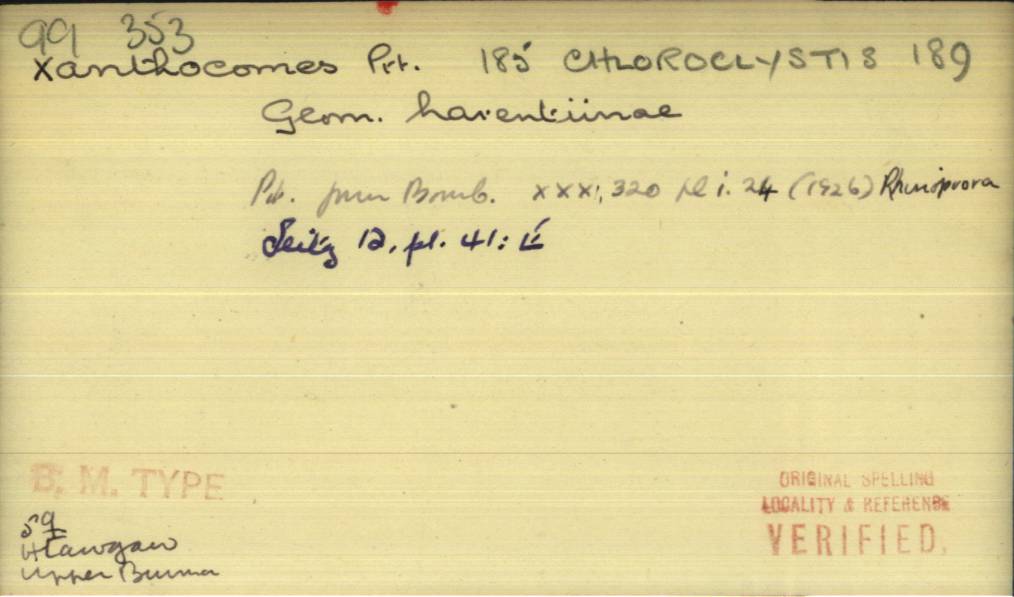 99 353
Xanthocomes Prt. 185 CHLOROCLYSTIS 189
Geom. larentiinae
Prt. Journ Bomb. xxxi, 320 pl i. 24 (1926) Rhinoprora
Seitz 12. pl. 41:
B. M. TYPE
Htawgaw
Upper Burma
ORIGINAL SPELLING
LOCALITY & REFERENCE
VERIFIED.